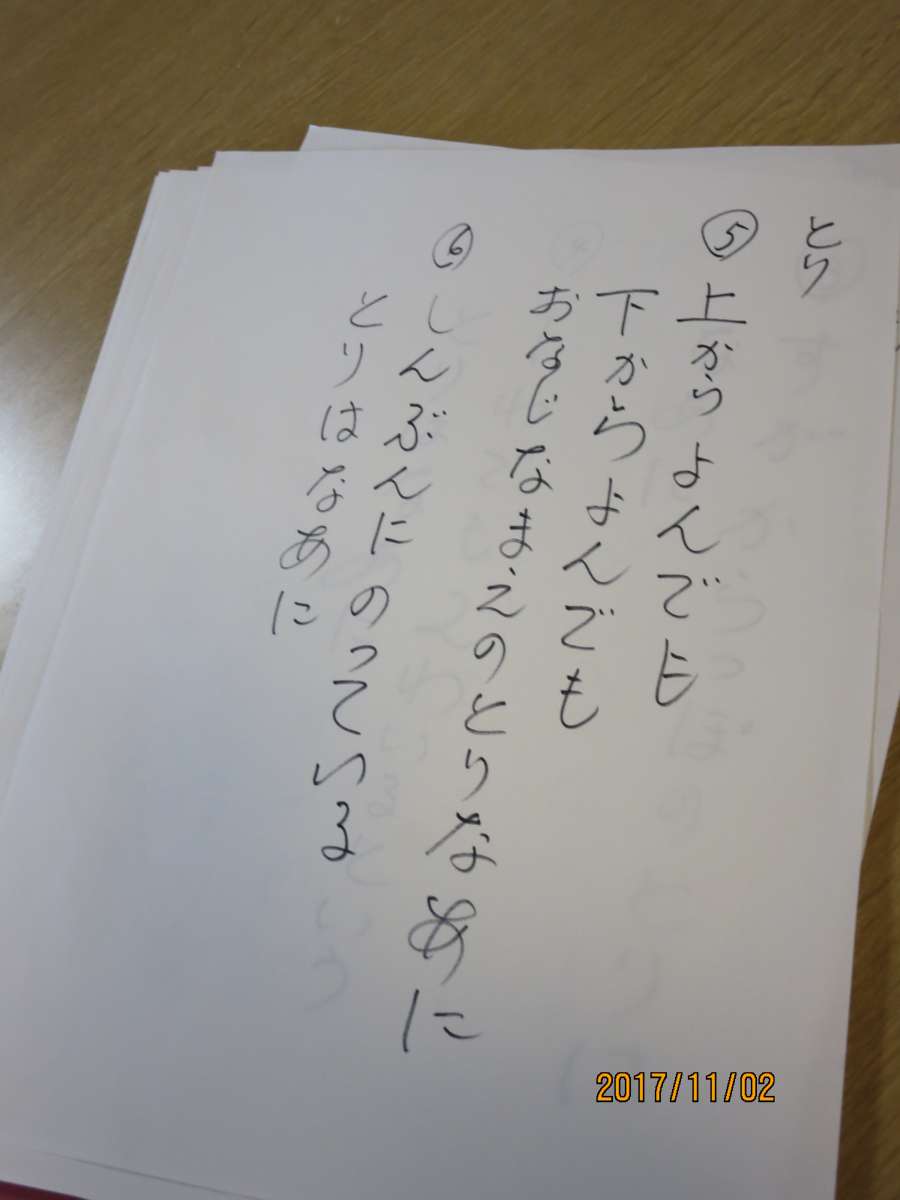 とり
⑤ 上からよんでも
下からよんでも
おなじなまえのとりなあに
⑥ しんぶんにのっている
とりはなあに
2017/11/02